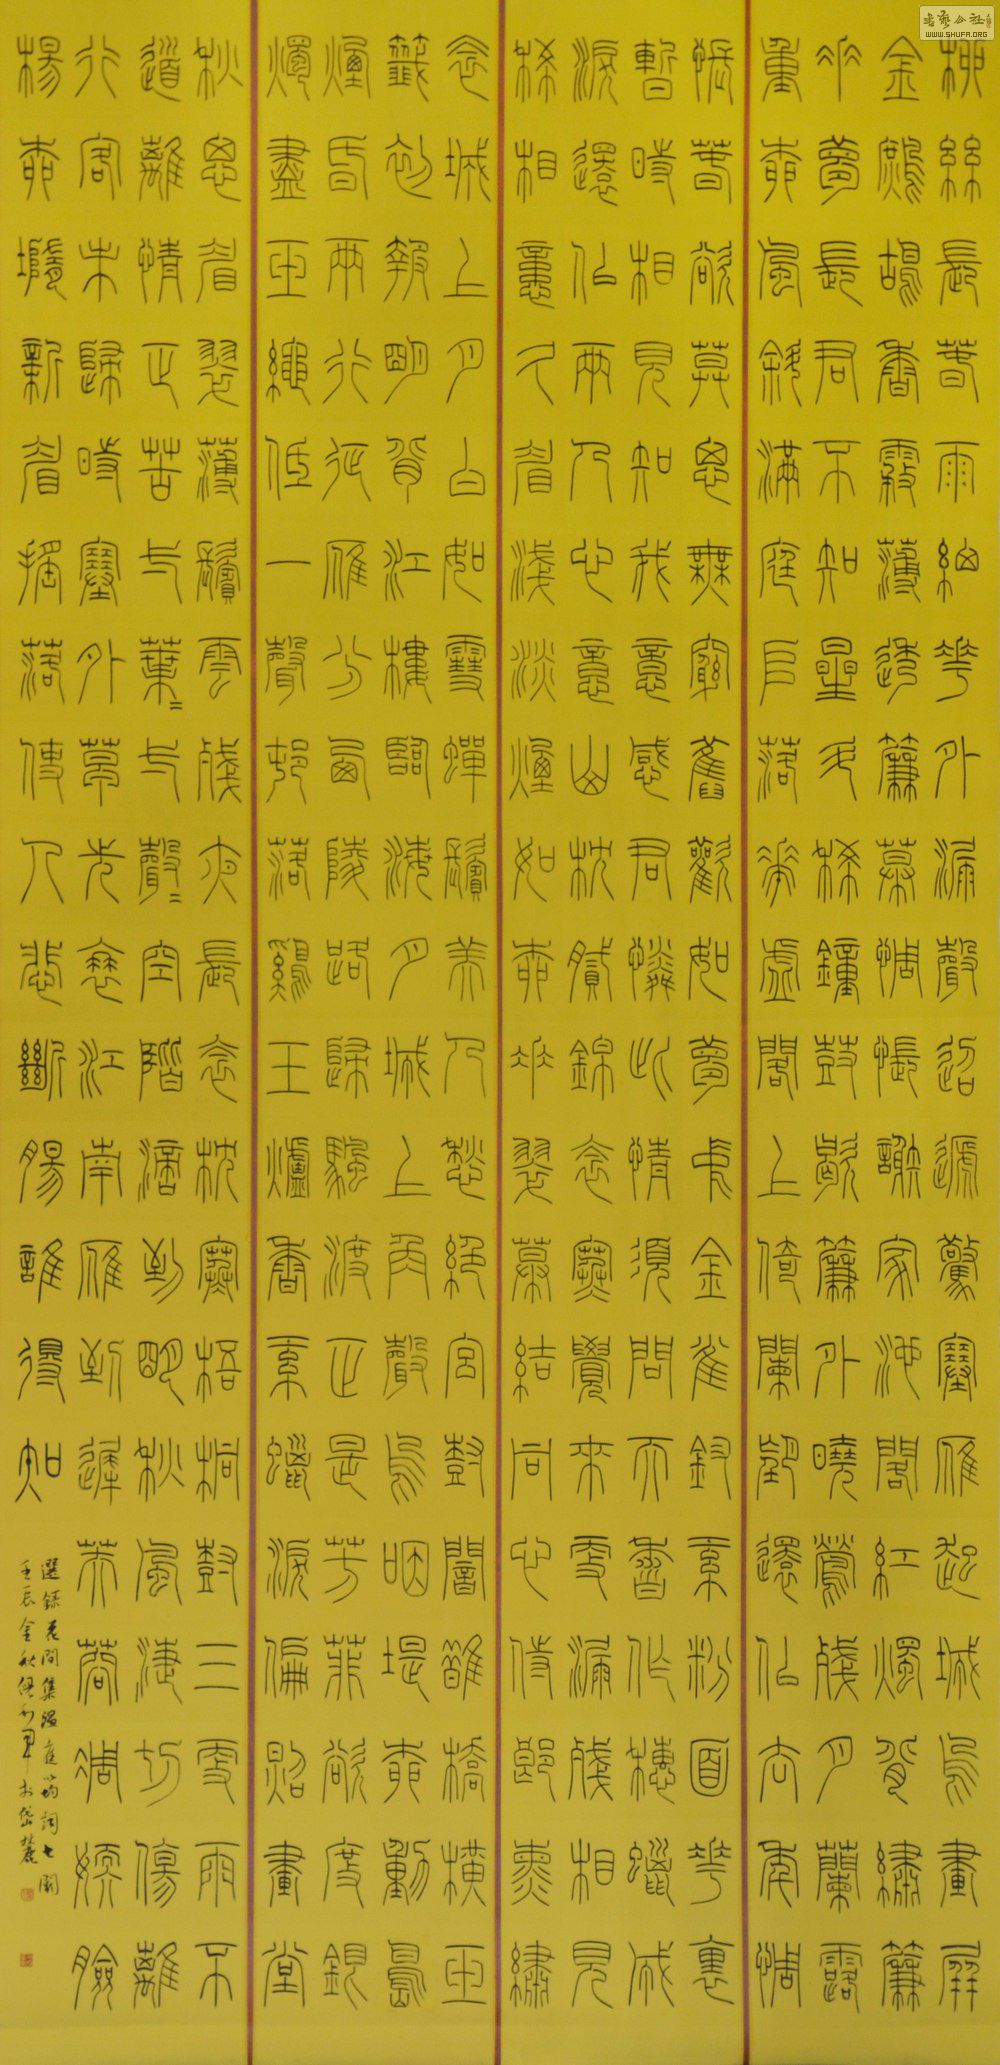 柳絲長春雨細花外漏聲迢遞驚塞雁起城烏畫屏
金鷓鴣香霧薄透簾幕惆悵謝家池閣紅燭背繡簾
垂夢長君不知星斗稀鐘鼓歇簾外曉鶯殘月蘭露
重柳風斜滿庭堆落花虛閣上倚闌望還似去年惆
悵春欲暮思無窮舊歡如夢中金雀釵紅粉面花裏
暫時相見知我意感君憐此情須問天香作穗蠟成
淚還似兩人心意山枕膩錦衾寒覺來更漏殘相見
稀相憶久眉淺淡煙如柳垂翠幕結同心待郎熏繡
衾城上月白如雪蟬鬢美人愁絕宮樹暗鵲橋橫玉
籤初報明背江樓臨海月城上角聲嗚咽堤柳動島
煙昏兩行征雁分西陵路歸帆渡正是芳菲欲度銀
燭盡玉繩低一聲村落雞玉爐香紅蠟淚偏照畫堂
秋思眉翠薄鬢雲殘夜長衾枕寒梧桐樹三更雨不
道離情正苦一葉〻一聲〻空階滴到明秋風淒切傷離
行客未歸時塞外草先衰江南雁到遲芙蓉凋嫩臉
楊柳墮新眉搖落使人悲斷腸誰得知
選錄花間集溫庭筠詞七闋
壬辰金秋於岱麓
書藝公社
WWW.SHUFA.ORG